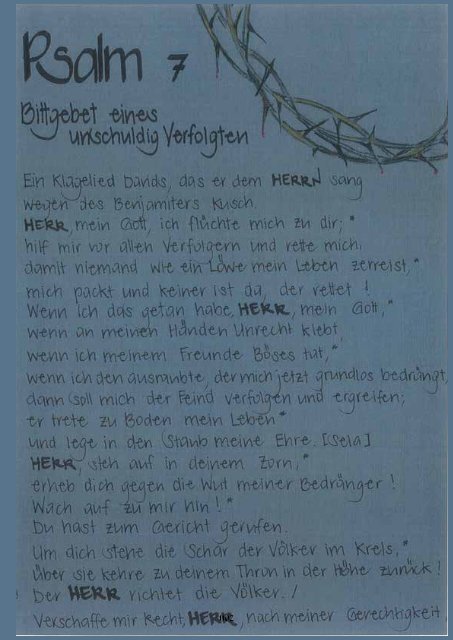 Psalm 7
Bittgebet eines
unschuldig Verfolgten
Ein Klagelied Davids, das er dem HERRN sang
wegen des Benjamiters Kusch.
HERR, mein Gott, ich flüchte mich zu dir; *
hilf mir vor allen Verfolgern und rette mich,
damit niemand wie ein Löwe mein Leben zerreist, *
mich packt und keiner ist da, der rettet !
Wenn ich das getan habe, HERR, mein Gott, *
wenn an meinen Händen Unrecht klebt,
wenn ich meinem Freunde Böses tat, *
wenn ich den ausraubte, der mich jetzt grundlos bedrängt,
dann soll mich der Feind verfolgen und ergreifen;
er trete zu Boden mein Leben *
und lege in den Staub meine Ehre. [Sela]
HERR, steh auf in deinem Zorn, *
erheb dich gegen die Wut meiner Bedränger !
Wach auf zu mir hin ! *
Du hast zum Gericht gerufen.
Um dich stehe die Schar der Völker im Kreis, *
über sie kehre zu deinem Thron in der Höhe zurück !
Der HERR richtet die Völker. /
Verschaffe mir Recht, HERR, nach meiner Gerechtigkeit,